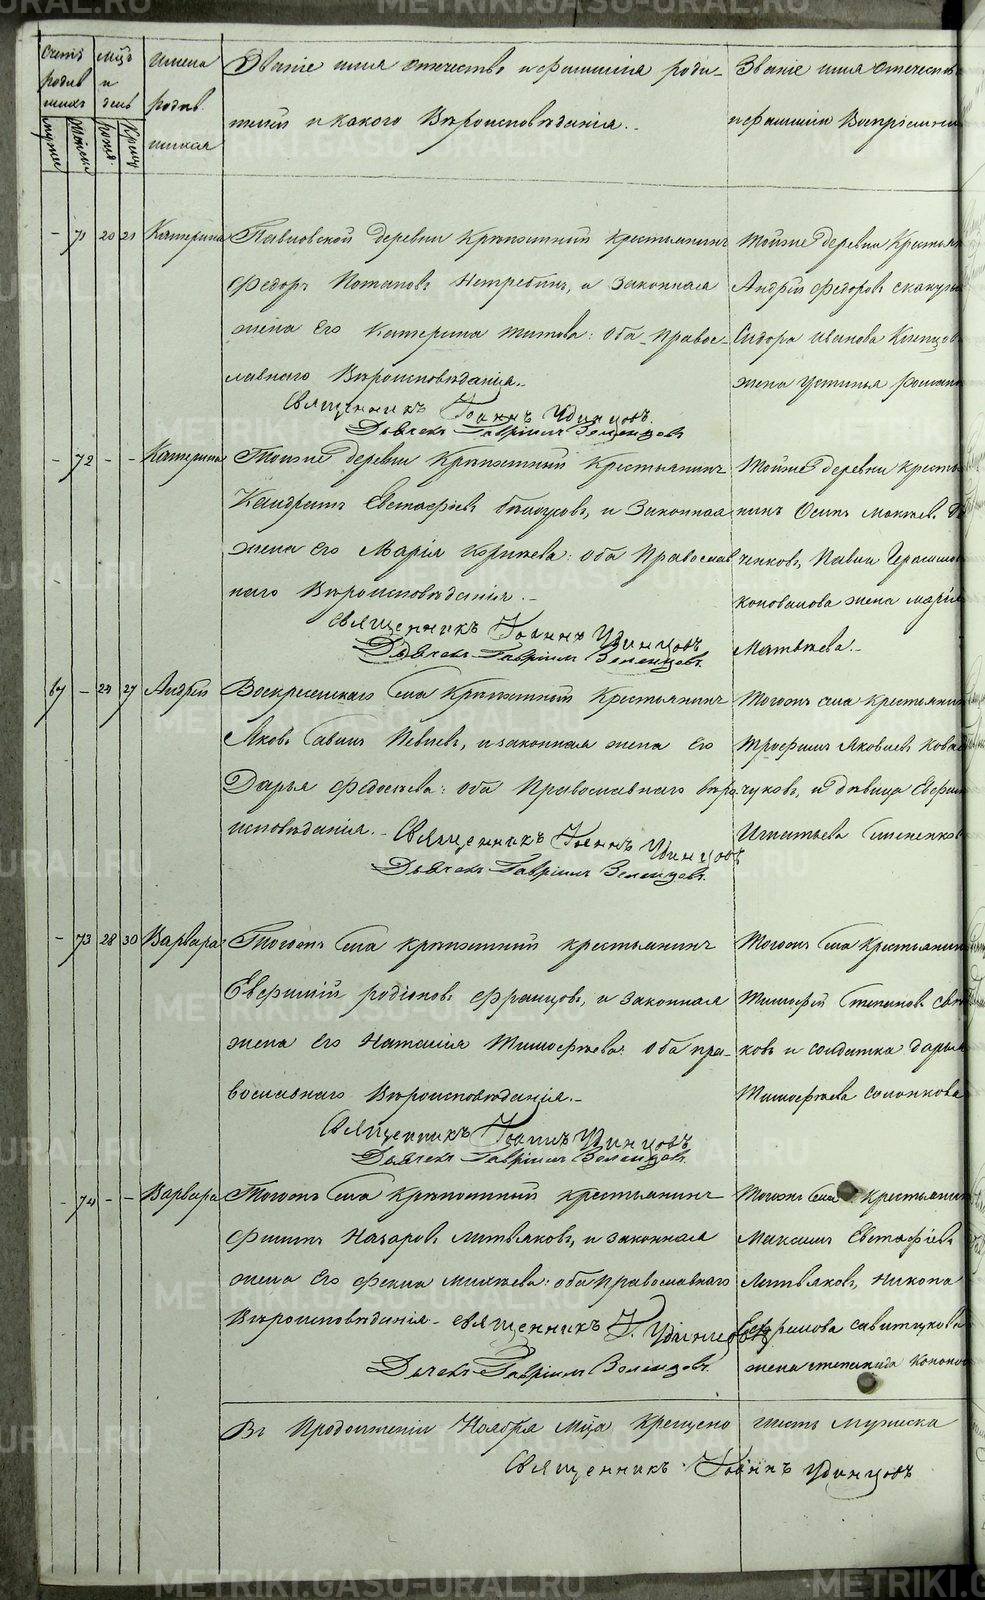 Счетъ родив шихъ
мужеск
женска
мцъ и день
рожд.
крещ
имена родив. шихся
Званіе имя отечество и фамилія роди-
телей и какого Вѣроисповѣданія.
Званіе имя отечество
и фамилія Воспріемни
- 71 20 21 Катерина Павловской деревни крѣпостный крестьянинъ
Федоръ Потаповъ Нетребинъ, и законная
жена его Катерина Титова: оба Правос-
лавнаго Вѣроисповѣданія.
Священникъ Іоаннъ Удинцовъ.
Дьячекъ Гавріилъ Зеленцовъ
Тойже деревни Крестьян
Андрей Федоровъ
Сидора Иванова
жена Устинья Роман
- 72 - - Катерина Тойже деревни Крѣпостный Крестьянинъ
Кандратъ Евстафіевъ, и Законная
жена его Марія: оба Православ
наго Вѣроисповѣданія.
Священникъ Іоаннъ Удинцовъ
Дьячекъ Гавріилъ Зеленцовъ.
Тойже деревни кресть
нинъ Осипъ
Павла Герасимов
коновалова жена Марія
Матвѣева.
67 - 24 27 Андрей Воскресенскаго села Крѣпостный Крестьянинъ
Яковъ Савинъ, и законная жена его
Дарья Федосѣева: оба Православнаго вѣро.
исповѣданія. Священникъ Іоаннъ Удинцовъ
Дьячекъ Гавріилъ Зеленцовъ.
Тогожъ села крестьянин
Трофимъ Яковлевъ Ковал
чуковъ, и дѣвица Евфим
Игнатьева
- 73 28 30 Варвара Тогожъ села крѣпостный крестьянинъ
Евфимій Родіоновъ Францовъ, и законная
жена его Наталія Тимофѣева: оба пра-
вославнаго Вѣроисповѣданія.
Священникъ Іоаннъ Удинцовъ
Дьячекъ Гавріилъ Зеленцовъ
Тогожъ села крестьянин
Тимофей Степановъ
ковъ и солдатка Дарья
Тимофѣева солопкова
- 74 - - Варвара Тогожъ села Крѣпостный крестьянинъ
Филипъ Назаровъ Литвяковъ, и законная
жена его Фекла Михѣева: оба Православнаго
Вѣроисповѣданія. Священникъ І. Удинцовъ
Дьячекъ Гавріилъ Зеленцовъ.
Тогожъ села крестьянин
Максимъ Евстафіевъ
Литвяковъ, Никона
Ефремова савицкова
жена степанида Конон
Въ Продолженіи Ноября мца Крещено шесть мужеска
Священникъ Іоаннъ Удинцовъ
METRIKI.GASO-URAL.RU